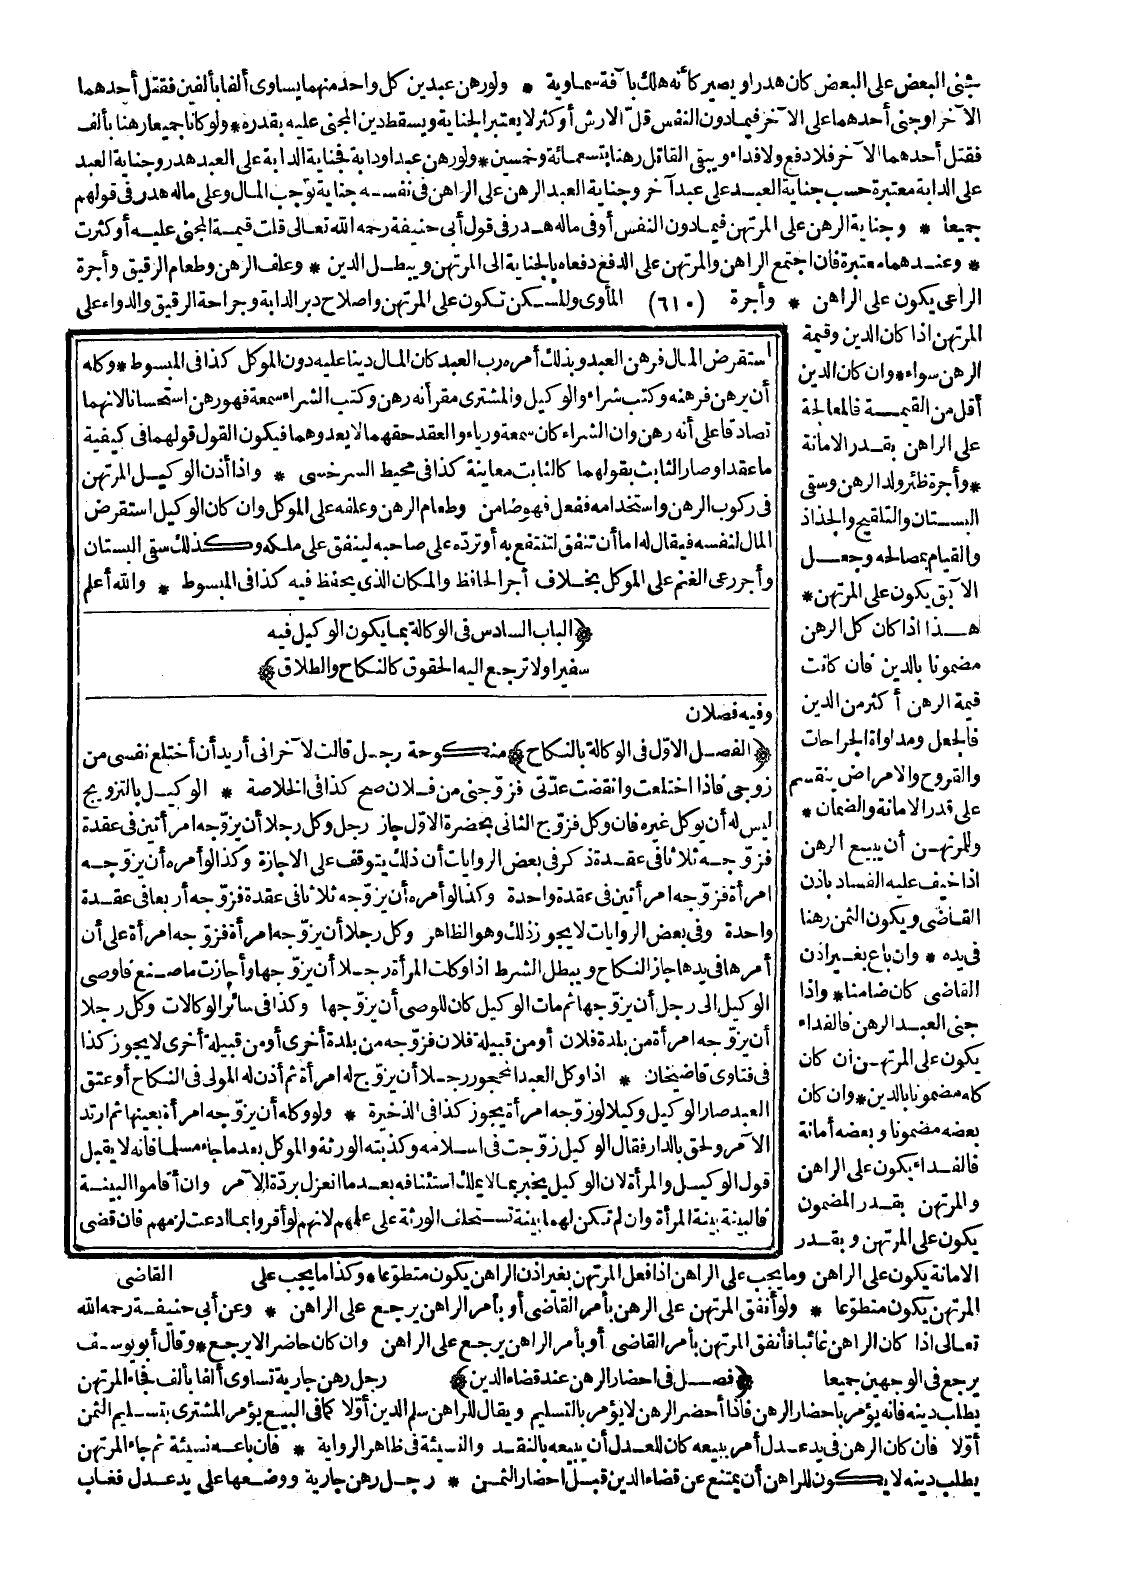 يجنى البعض على البعض كان هدرا ويصير كأنه هلك بآفة سماوية * ولو رهن عبدين كل واحد منهما يساوى ألفا بألفين فقتل أحدهما
الآخر أو جنى أحدهما على الآخر فيما دون النفس قل الارش أو كثر لا يعتبر الجناية ويسقط دين المجنى عليه بقدره * ولو كانا جميعا رهنا بألف
فقتل أحدهما الآخر فلا دفع ولا فداء ويبقى القاتل رهنا بتسعمائة وخمسين * ولو رهن عبدا ودابة فجناية الدابة على العبد هدر وجناية العبد
على الدابة معتبرة حسب جناية العبد على عبد آخر وجناية العبد الرهن على الراهن فى نفسه جناية توجب المال وعلى ماله هدر فى قولهم
جميعا * وجناية الرهن على المرتهن فيما دون النفس أو فى ماله هدر فى قول أبى حنيفة رحمه الله تعالى قلت قيمة المجنى عليه أو كثرت
* وعندهما معتبرة فان اجتمع الراهن والمرتهن على الدفع دفعاه بالجناية الى المرتهن ويبطل الدين * وعلف الرهن وطعام الرقيق وأجرة
الراعى يكون على الراهن * وأجرة (٦١٠) المأوى والمسكن تكون على المرتهن واصلاح دبر الدابة وجراحة الرقيق والدواء على
المرتهن اذا كان الدين وقيمة
الرهن سواء * وان كان الدين
أقل من القيمة فالمعالجة
على الراهن بقدر الامانة
* وأجرة ظئر ولد الرهن وسقى
البستان والتلقيح والجذاذ
والقيام بمصالحه وجعل
الآبق يكون على المرتهن *
هذا اذا كان كل الرهن
مضمونا بالدين فان كانت
قيمة الرهن أكثر من الدين
فالجعل ومداواة الجراحات
والقروح والامراض ينقسم
على قدر الامانة والضمان *
وللمرتهن أن يبيع الرهن
اذا خيف عليه الفساد باذن
القاضى ويكون الثمن رهنا
فى يده * وان باع بغير اذن
القاضى كان ضامنا * واذا
جنى العبد الرهن فالفداء
يكون على المرتهن ان كان
كله مضمونا بالدين * وان كان
بعضه مضمونا وبعضه أمانة
فالفداء يكون على الراهن
والمرتهن بقدر المضمون
يكون على المرتهن وبقدر
الامانة يكون على الراهن وما يجب على الراهن اذا فعل المرتهن بغير اذن الراهن يكون متطوعا * وكذا ما يجب على القاضى
المرتهن يكون متطوعا * ولو أنفق المرتهن على الرهن بأمر القاضى أو بأمر الراهن يرجع على الراهن * وعن أبى حنيفة رحمه الله
تعالى اذا كان الراهن غائبا فأنفق المرتهن بأمر القاضى أو بأمر الراهن يرجع على الراهن وان كان حاضرا لا يرجع * وقال أبو يوسف
يرجع فى الوجهين جميعا ﴿فصل فى احضار الرهن عند قضاء الدين﴾ رجل رهن جارية تساوى ألفا بألف فجاء المرتهن
يطلب دينه فانه يؤمر باحضار الرهن فاذا أحضر الرهن لا يؤمر بالتسليم ويقال للراهن سلم الدين أولا كما فى البيع يؤمر المشترى بتسليم الثمن
أولا فان كان الرهن فى يد عدل أمر ببيعه كان للعدل أن يبيعه بالنقد والنسيئة فى ظاهر الرواية * فان باعه نسيئة ثم جاء المرتهن
يطلب دينه لا يكون للراهن أن يمتنع عن قضاء الدين قبل احضار الثمن * رجل رهن جارية ووضعها على يد عدل فغاب
استقرض المال فرهن العبد وبذلك أمره رب العبد كان المال دينا عليه دون الموكل كذا فى المبسوط * وكله
أن يرهن فرهنه وكتب شراء والوكيل والمشترى مقر أنه رهن وكتب الشراء سمعة فهو رهن استحسانا لانهما
تصادقا على أنه رهن وان الشراء كان سمعة ورياء والعقد حقهما لا يعدوهما فيكون القول قولهما فى كيفية
ما عقدا وصار الثابت بقولهما كالثابت معاينة كذا فى محيط السرخسى * واذا أذن الوكيل المرتهن
فى ركوب الرهن واستخدامه ففعل فهو ضامن وطعام الرهن وعلفه على الموكل وان كان الوكيل استقرض
المال لنفسه فيقال له اما أن تنفق لتنتفع به أو ترده على صاحبه لينفق على ملكه وكذلك سقى البستان
وأجر رعى الغنم على الموكل بخلاف أجر الحافظ والمكان الذى يحفظ فيه كذا فى المبسوط * والله أعلم
﴿الباب السادس فى الوكالة بما يكون الوكيل فيه
سفيرا ولا ترجع اليه الحقوق كالنكاح والطلاق﴾
وفيه فصلان
﴿الفصل الاول فى الوكالة بالنكاح﴾ منكوحة رجل قالت لآخر انى أريد أن أختلع نفسى من
زوجى فاذا اختلعت وانقضت عدتى فزوجنى من فلان صح كذا فى الخلاصة * الوكيل بالتزويج
ليس له أن يوكل غيره فان وكل فزوج الثانى بحضرة الاول جاز رجل وكل رجلا أن يزوجه امرأتين فى عقدة
فزوجه ثلاثا فى عقدة ذكر فى بعض الروايات أن ذلك يتوقف على الاجازة وكذا لو أمره أن يزوجه
امرأة فزوجه امرأتين فى عقدة واحدة وكذا لو أمره أن يزوجه ثلاثا فى عقدة فزوجه أربعا فى عقدة
واحدة وفى بعض الروايات لا يجوز ذلك وهو الظاهر وكل رجلا أن يزوجه امرأة فزوجه امرأة على أن
أمرها فى يدها جاز النكاح ويبطل الشرط اذا وكلت المرأة رجلا أن يزوجها وأجازت ما صنع فاوصى
الوكيل الى رجل أن يزوجها ثم مات الوكيل كان للوصى أن يزوجها وكذا فى سائر الوكالات وكل رجلا
أن يزوجه امرأة من بلدة فلان أو من قبيلة فلان فزوجه من بلدة أخرى أو من قبيلة أخرى لا يجوز كذا
فى فتاوى قاضيخان * اذا وكل العبد المحجور رجلا أن يزوج له امرأة ثم أذن له المولى فى النكاح أو عتق
العبد صار الوكيل وكيلا لو زوجه امرأة يجوز كذا فى الذخيرة * ولو وكله أن يزوجه امرأة بعينها ثم ارتد
الآمر ولحق بالدار فقال الوكيل زوجت فى اسلامه وكذبته الورثة والموكل بعد ما جاء مسلما فانه لا يقبل
قول الوكيل والمرأة لان الوكيل يخبر بما لا يملك استئنافه بعد ما انعزل بردة الآمر وان أقاموا البينة
فالبينة بينة المرأة وان لم تكن لهما بينة تستحلف الورثة على علمهم لانهم لو أقروا بما ادعت لزمهم فان قضى